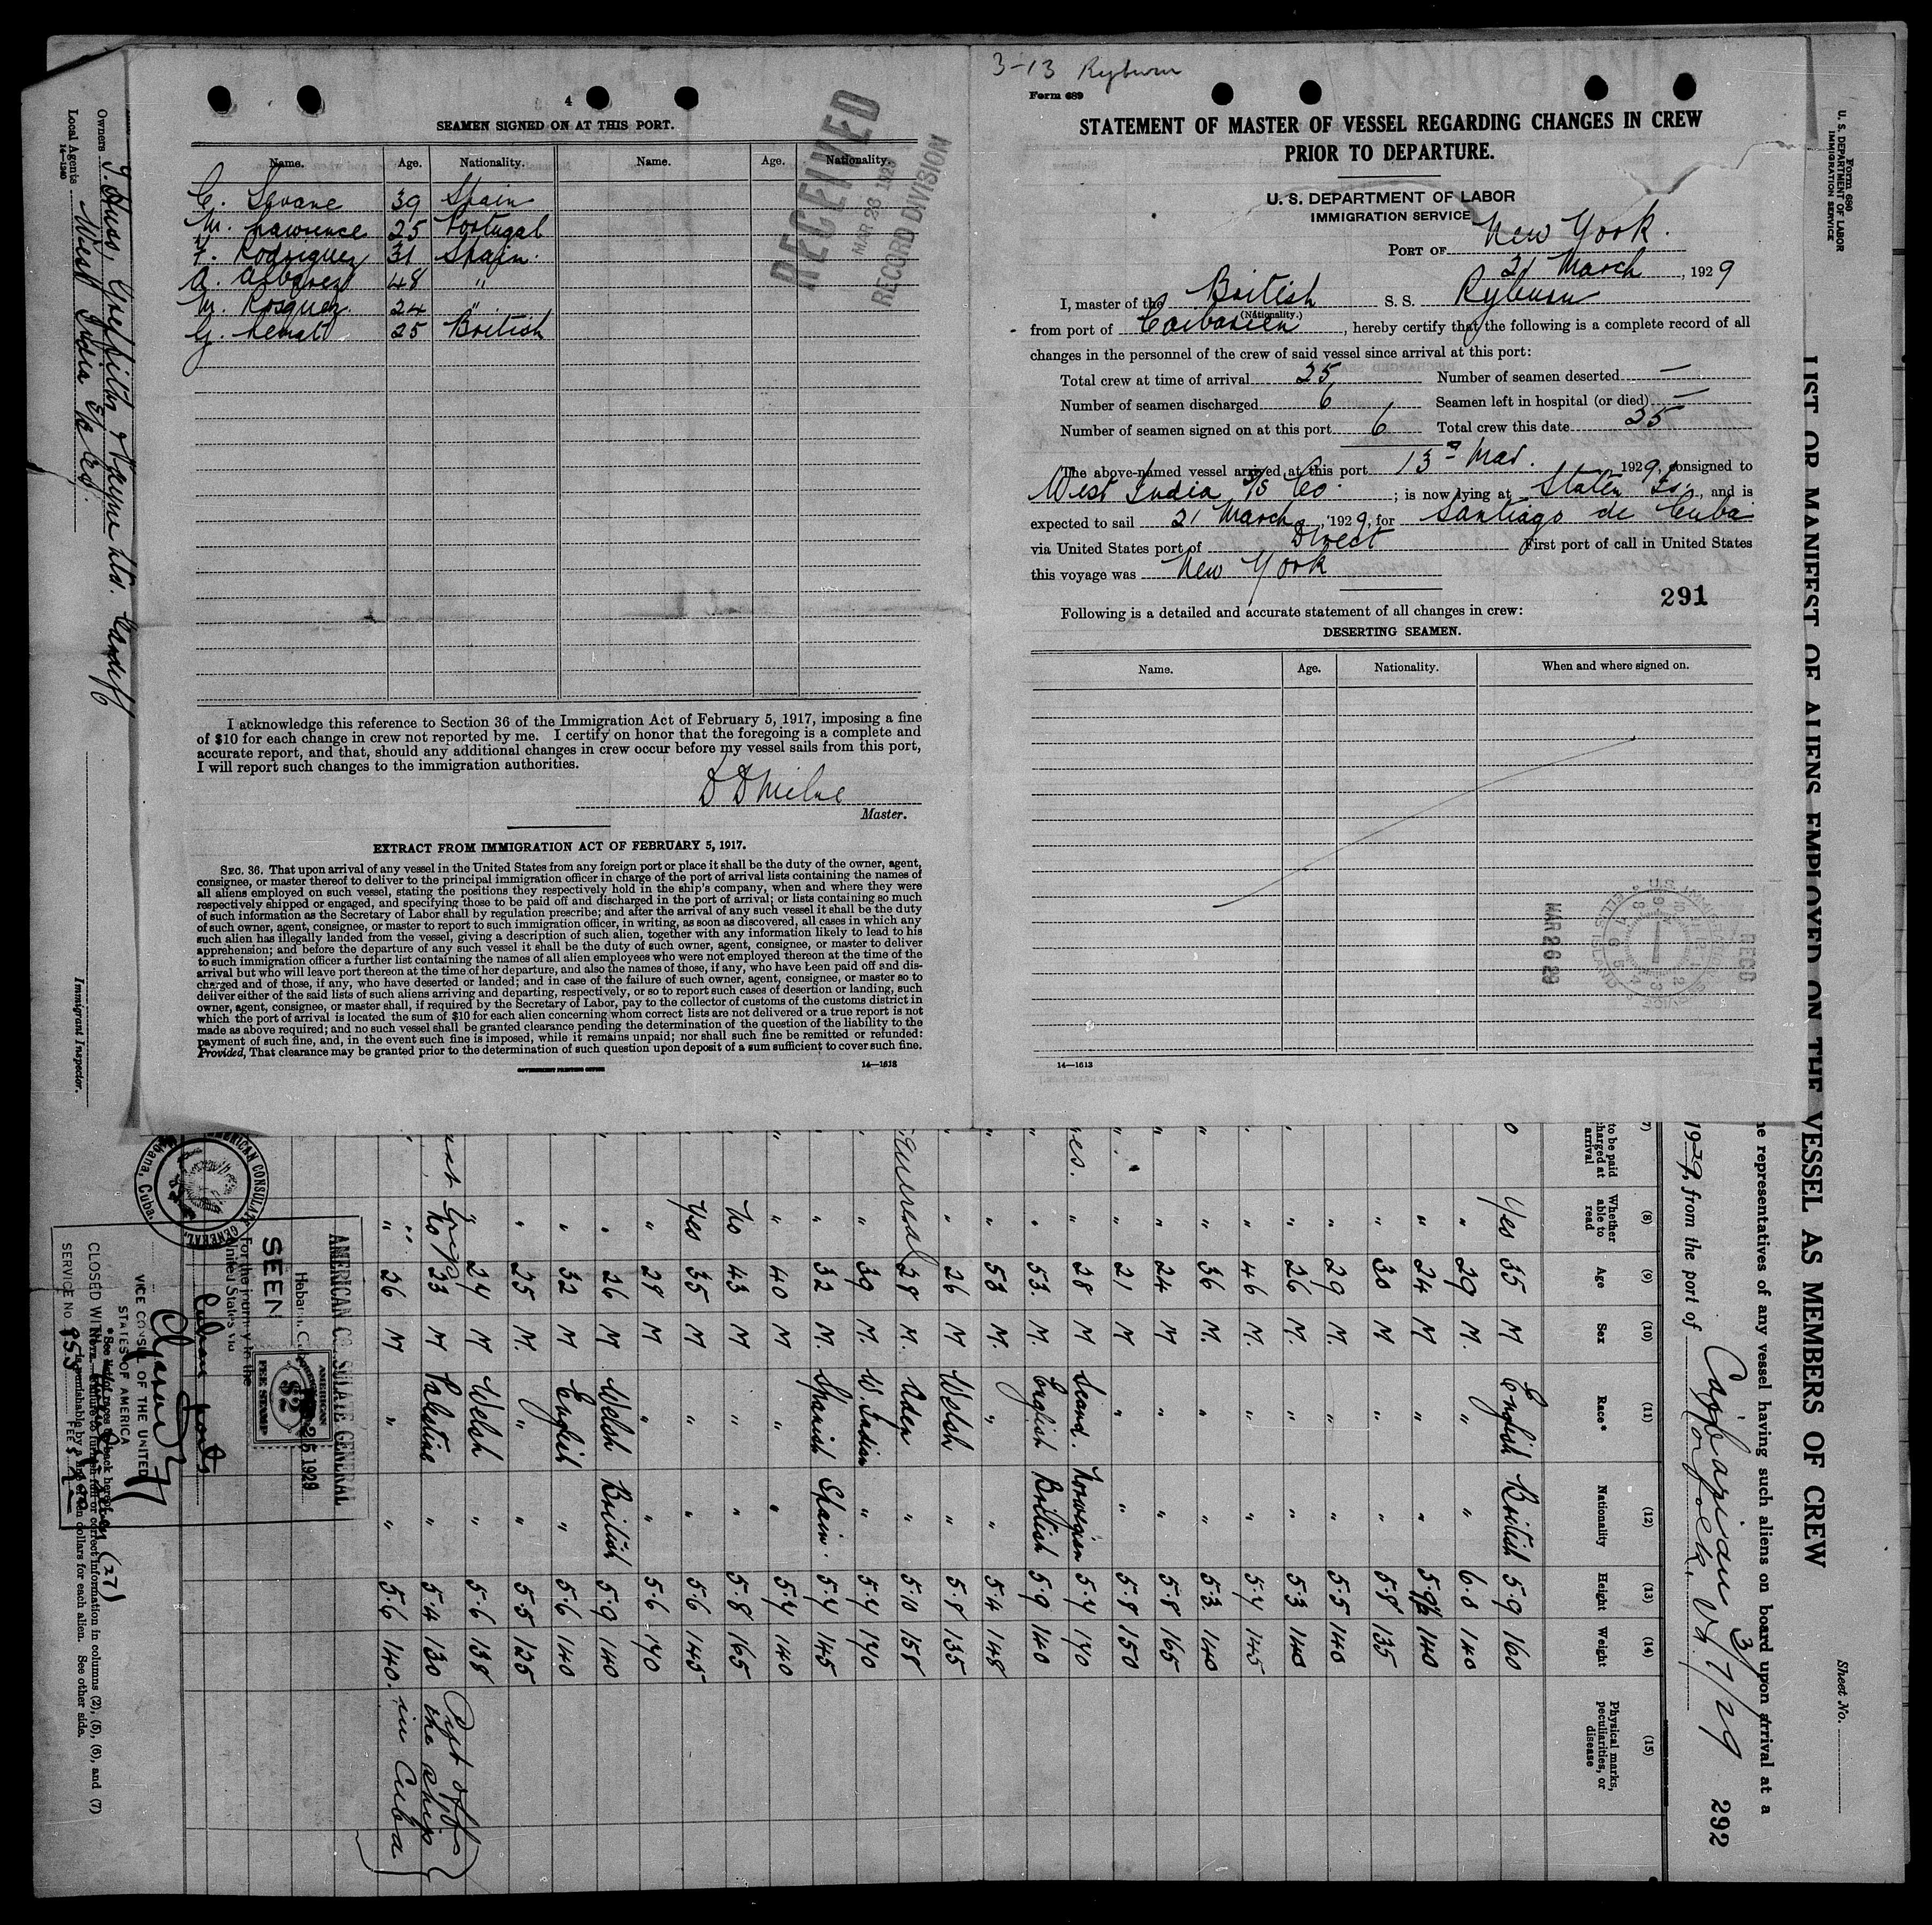 4
SEAMEN SIGNED ON AT THIS PORT.
Name. Age. Nationality. Name. Age. Nationality.
C. 39 Spain
M. Lawrence 25 Portugal
F. Rodriguez 31 Spain.
A. 48 "
M. 24 "
G. 25 British
RECEIVED
MAR 26
RECORD DIVISION
I acknowledge this reference to Section 36 of the Immigration Act of February 5, 1917, imposing a fine
of $10 for each change in crew not reported by me. I certify on honor that the foregoing is a complete and
accurate report, and that, should any additional changes in crew occur before my vessel sails from this port,
I will report such changes to the immigration authorities.
D D Milne
Master.
EXTRACT FROM IMMIGRATION ACT OF FEBRUARY 5, 1917.
SEC. 36. That upon arrival of any vessel in the United States from any foreign port or place it shall be the duty of the owner, agent,
consignee, or master thereof to deliver to the principal immigration officer in charge of the port of arrival lists containing the names of
all aliens employed on such vessel, stating the positions they respectively hold in the ship's company, when and where they were
respectively shipped or engaged, and specifying those to be paid off and discharged in the port of arrival; or lists containing so much
of such information as the Secretary of Labor shall by regulation prescribe; and after the arrival of any such vessel it shall be the duty
of such owner, agent, consignee, or master to report to such immigration officer, in writing, as soon as discovered, all cases in which any
such alien has illegally landed from the vessel, giving a description of such alien, together with any information likely to lead to his
apprehension; and before the departure of any such vessel it shall be the duty of such owner, agent, consignee, or master to deliver
to such immigration officer a further list containing the names of all alien employees who were not employed thereon at the time of the
arrival but who will leave port thereon at the time of her departure, and also the names of those, if any, who have been paid off and dis-
charged and of those, if any, who have deserted or landed; and in case of the failure of such owner, agent, consignee, or master so to
deliver either of the said lists of such aliens arriving and departing, respectively, or so to report such cases of desertion or landing, such
owner, agent, consignee, or master shall, if required by the Secretary of Labor, pay to the collector of customs of the customs district in
which the port of arrival is located the sum of $10 for each alien concerning whom correct lists are not delivered or a true report is not
made as above required; and no such vessel shall be granted clearance pending the determination of the question of the liability to the
payment of such fine, and, in the event such fine is imposed, while it remains unpaid; nor shall such fine be remitted or refunded:
Provided, That clearance may be granted prior to the determination of such question upon deposit of a sum sufficient to cover such fine.
GOVERNMENT PRINTING OFFICE
14—1613
3-13 Ryburn
Form 689
STATEMENT OF MASTER OF VESSEL REGARDING CHANGES IN CREW
PRIOR TO DEPARTURE.
U. S. DEPARTMENT OF LABOR
IMMIGRATION SERVICE
PORT OF New York.
21 March, 1929
I, master of the British S. S. Ryburn
(Nationality.)
from port of Caibarien, hereby certify that the following is a complete record of all
changes in the personnel of the crew of said vessel since arrival at this port:
Total crew at time of arrival 25 Number of seamen deserted —
Number of seamen discharged 6 Seamen left in hospital (or died) —
Number of seamen signed on at this port 6 Total crew this date 25
The above-named vessel arrived at this port 13th Mar. 1929, consigned to
West India S/S Co.; is now lying at Staten Is., and is
expected to sail 21 March, 1929, for Santiago de Cuba
via United States port of Direct First port of call in United States
this voyage was New York
291
Following is a detailed and accurate statement of all changes in crew:
DESERTING SEAMEN.
Name. Age. Nationality. When and where signed on.
MAR 26 29
RECD
14—1613
Form 680
U. S. DEPARTMENT OF LABOR
IMMIGRATION SERVICE
LIST OR MANIFEST OF ALIENS EMPLOYED ON THE VESSEL AS MEMBERS OF CREW
Sheet No.
e representatives of any vessel having such aliens on board upon arrival at a
1929, from the port of
292
to be paid
charged at
arrival
(8) Whether able to read
(9) Age
(10) Sex
(11) Race*
(12) Nationality
(13) Height
(14) Weight
(15) Physical marks, peculiarities, or disease
Yes 35 M English British 5.9 160
" 29 M. " " 6.0 140
" 24 M " " 5.9½ 140
" 30 M " " 5.8 135
" 29 M. " " 5.5 140
" 26 M. " " 5.3 140
" 46 M. " " 5.4 145
" 36 M. " " 5.3 140
" 24 M " " 5.8 165
" 21 M " " 5.8 150
" 28 M Scand. Norwegian 5.4 140
" 53. M. English British 5.9 140
" 53 M. " " 5.4 148
" 26 M Welsh " 5.8 135
28 M. Aden " 5.10 158
" 39 M. W. Indian " 5.4 140
" 32 M. Spanish Spain. 5.4 145
" 40 M " " 5.4 140
No 43 M " " 5.8 165
Yes 35 M " " 5.6 145
" 28 M " " 5.6 140
" 26 M Welsh British 5.9 140
" 32 M English " 5.6 140
" 25 M. " " 5.5 125
" 24 M Welsh " 5.6 138
No 23 M Palestine " 5.4 130
" 26 M " " 5.6 140
off
the ship
in Cuba
AMERICAN CONSULATE GENERAL
Habana, Cuba
25 1929
SEEN
For the journey to the
United States via
Cuban ports
AMERICAN
$2
FEE STAMP
VICE CONSUL OF THE UNITED
STATES OF AMERICA
CLOSED WITH
(27)
SERVICE NO. 953 FEE $ 2
AMERICAN CONSULATE GENERAL
Habana, Cuba.
*See list of races on back hereof.
NOTE.—Failure to furnish full or correct information in columns (2), (5), (6), and (7)
is punishable by a fine of ten dollars for each alien. See other side.
Owners Griffiths & Hayne Ltd. Cardiff
Local Agents West India S/S Co.
14—1240
Immigrant Inspector.